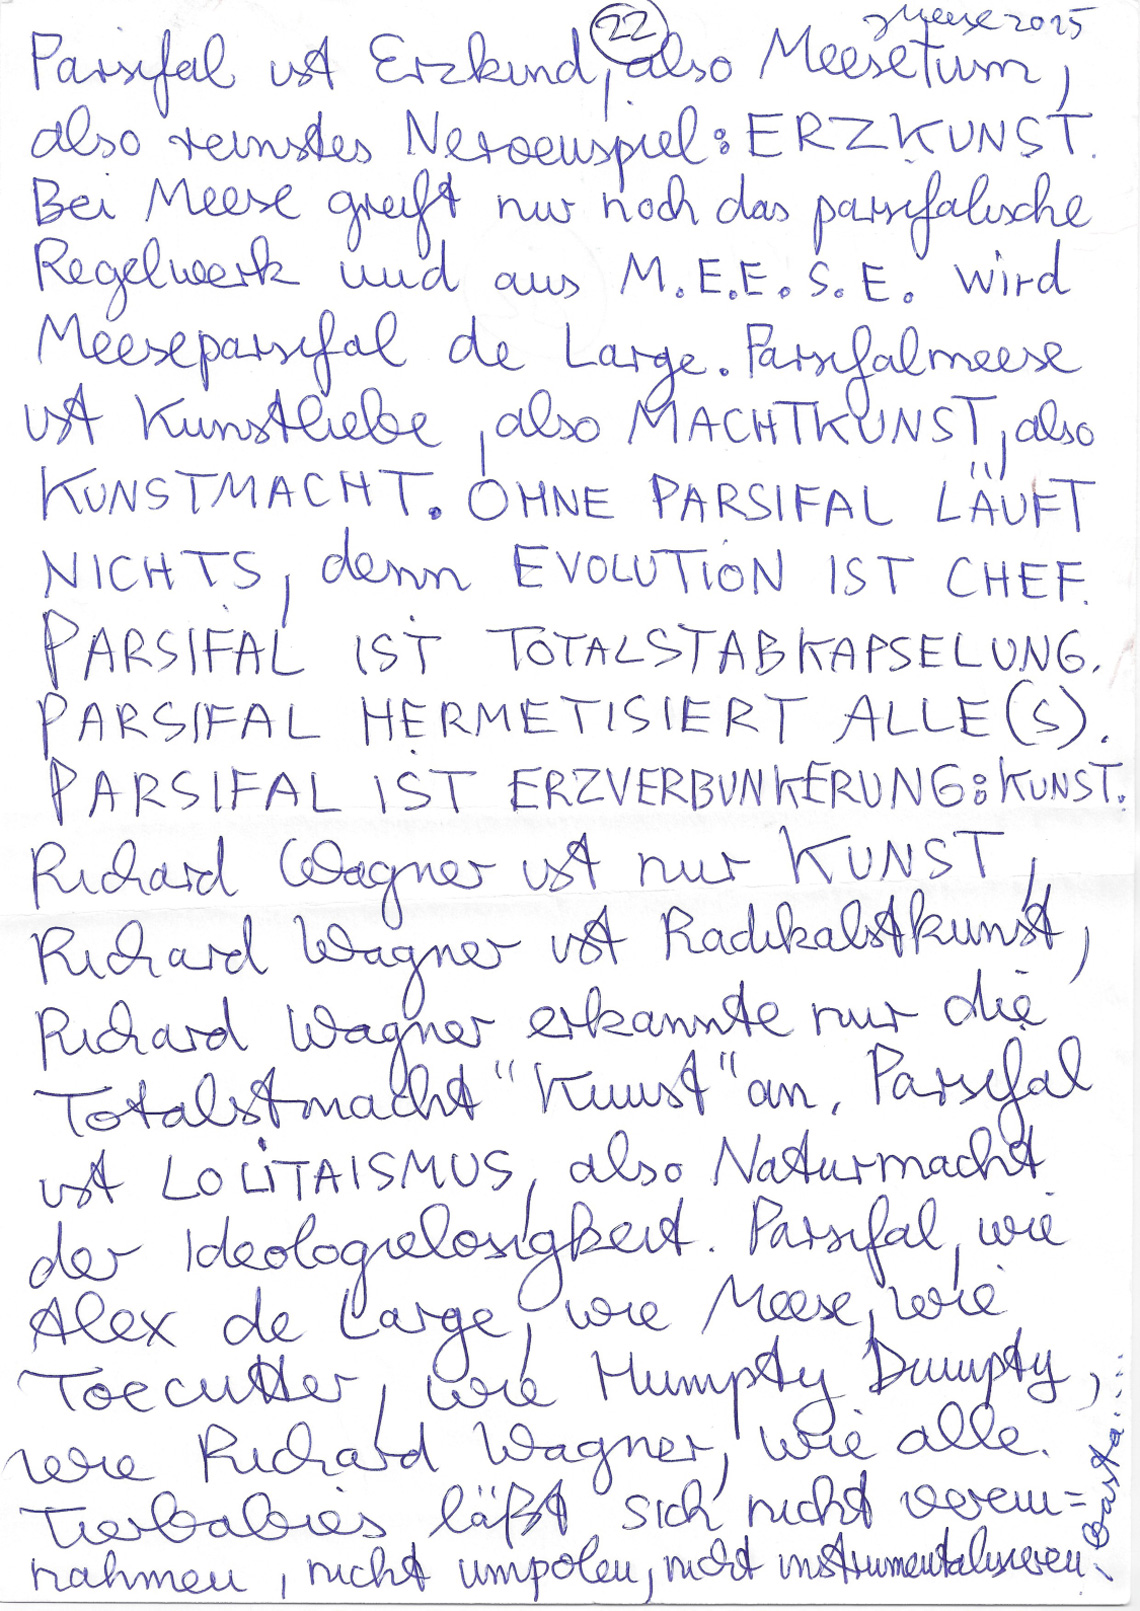 22
JMeese 2025
Parsifal ist Erzkind, also Meesetum,
also reinstes Neroenspiel: ERZKUNST.
Bei Meese greift nur noch das parsifalische
Regelwerk und aus M.E.E.S.E. wird
Meeseparsifal de Large. Parsifalmeese
ist Kunstliebe, also MACHTKUNST, also
KUNSTMACHT. OHNE PARSIFAL LÄUFT
NICHTS, denn EVOLUTION IST CHEF.
PARSIFAL IST TOTALSTABKAPSELUNG.
PARSIFAL HERMETISIERT ALLE(S).
PARSIFAL IST ERZVERBUNKERUNG: KUNST.
Richard Wagner ist nur KUNST,
Richard Wagner ist Radikalstkunst,
Richard Wagner erkannte nur die
Totalstmacht "Kunst" an. Parsifal
ist LOLITAISMUS, also Naturmacht
der Ideologielosigkeit. Parsifal, wie
Alex de Large, wie Meese, wie
Toecutter, wie Humpty Dumpty,
wie Richard Wagner, wie alle
Tierbabies läßt sich nicht verein=
nahmen, nicht umpolen, nicht instrumentalisieren.
Basta....